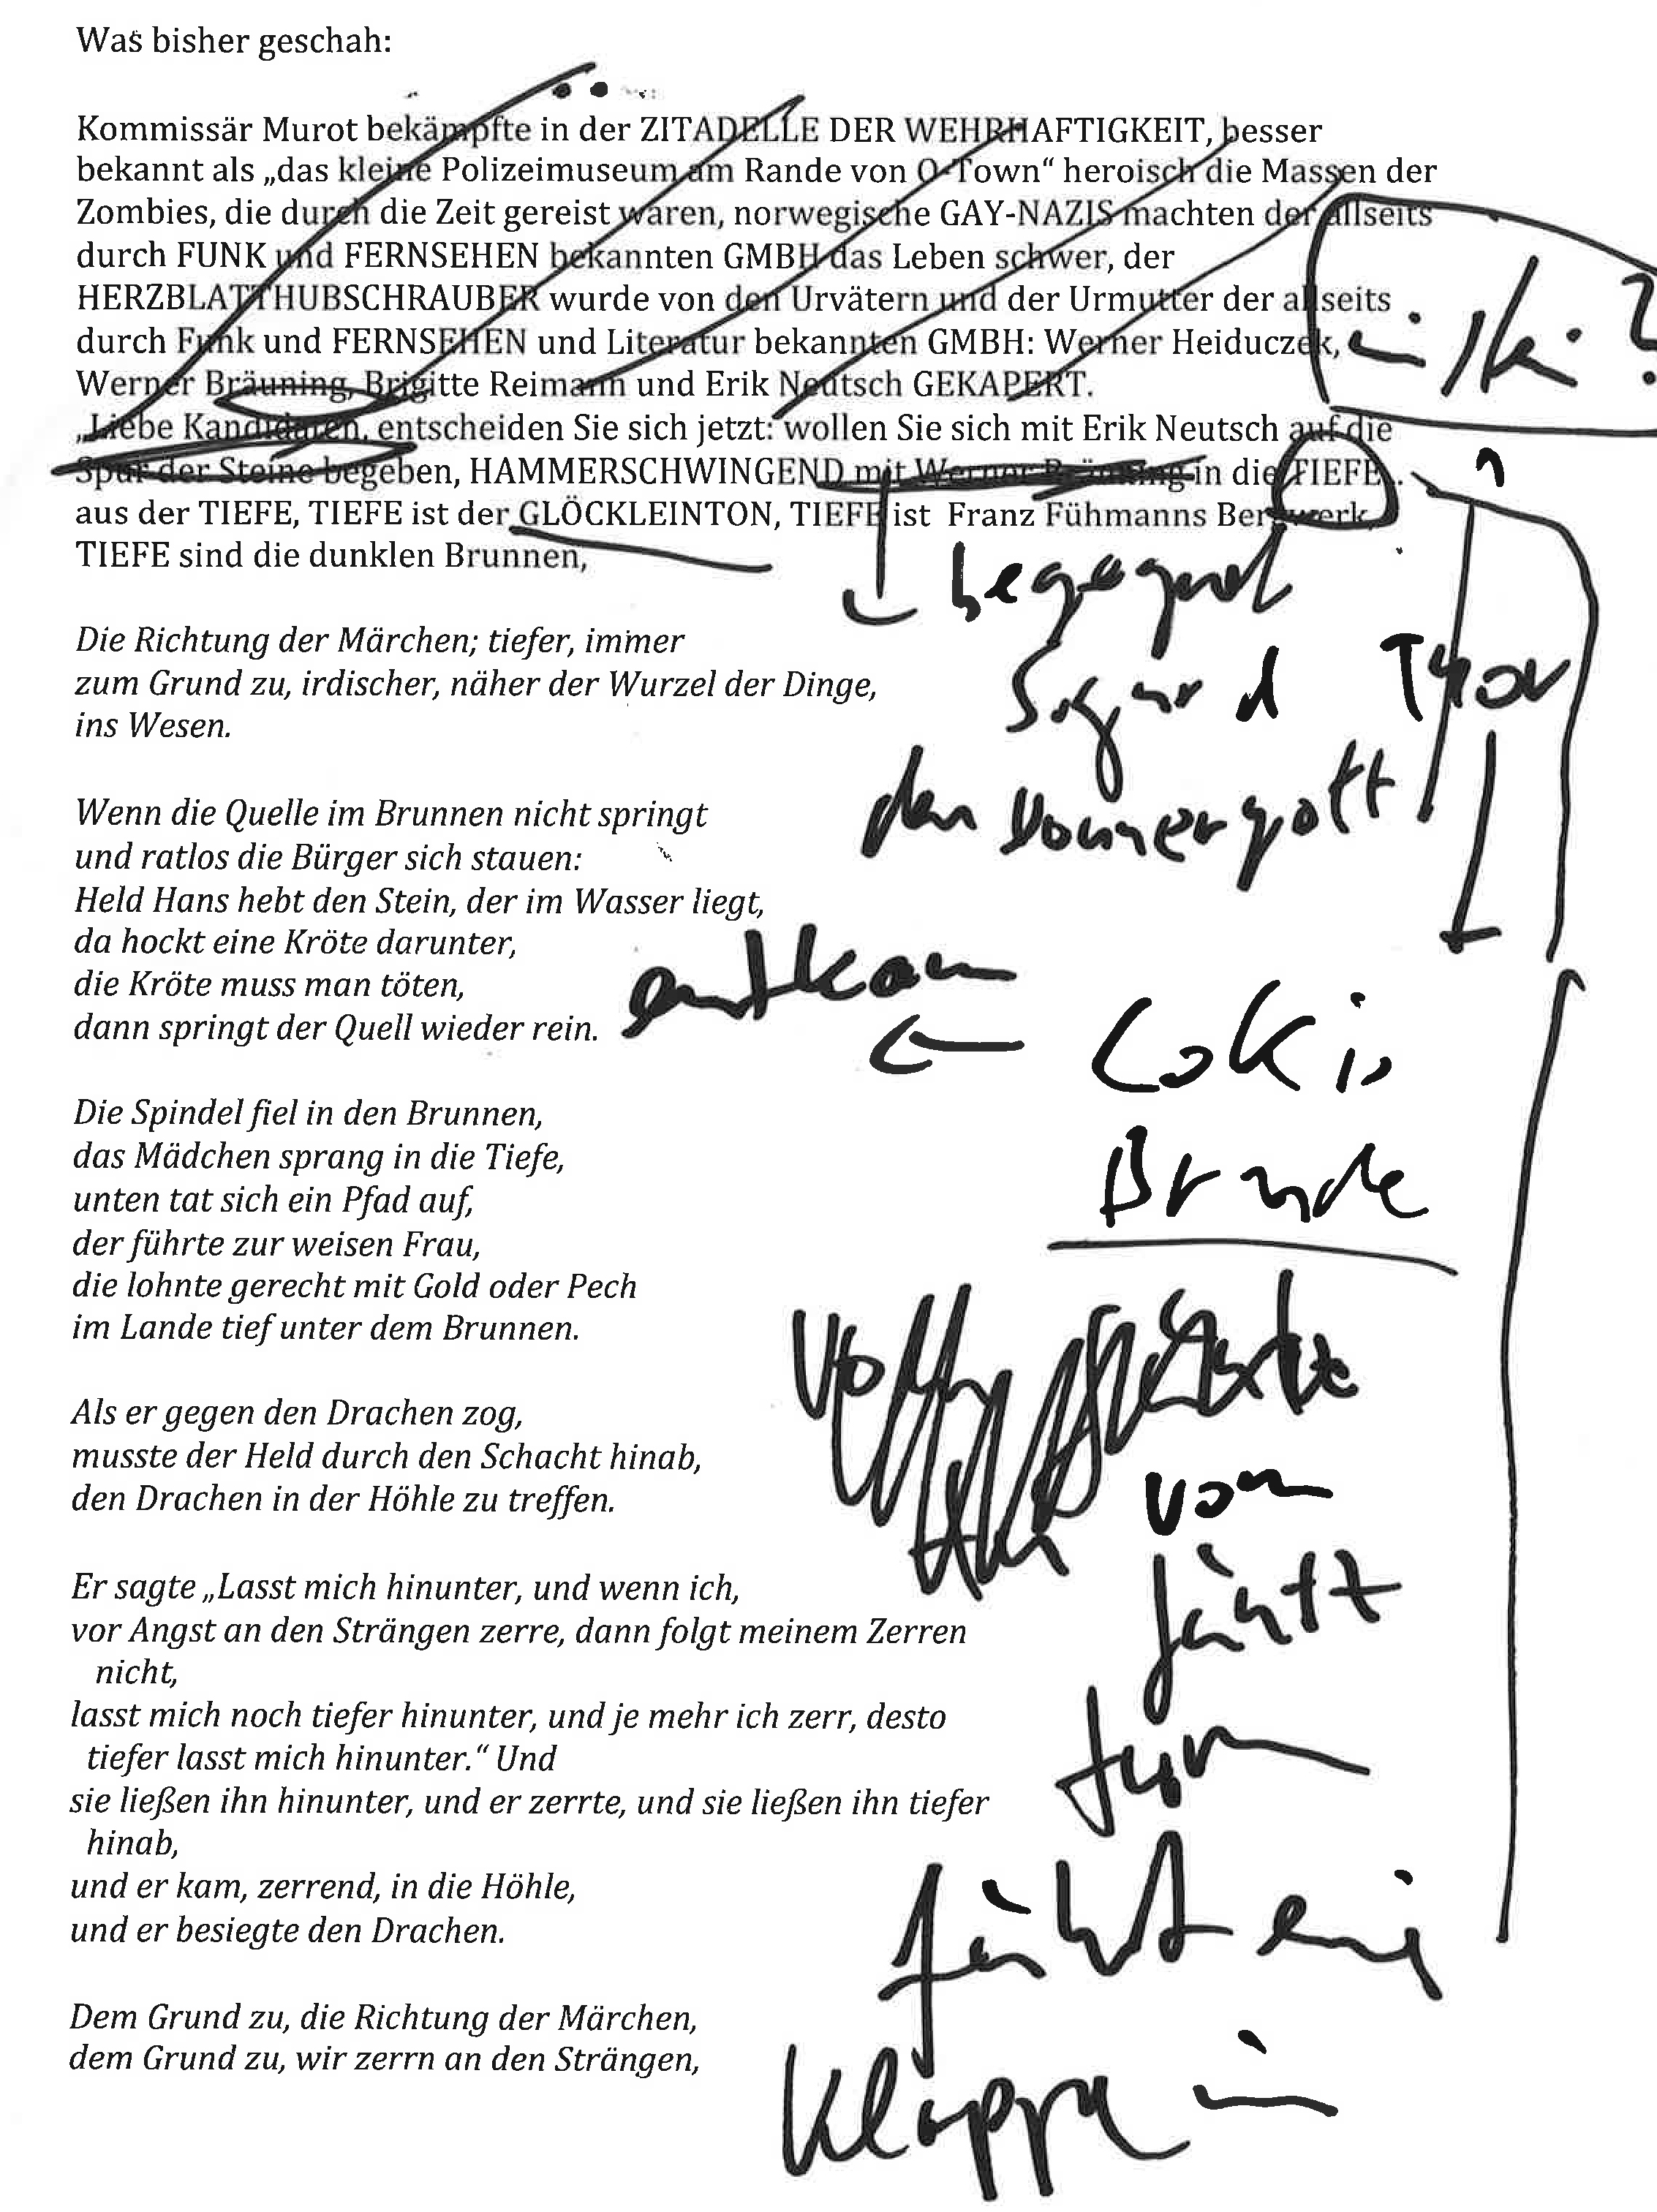 Was bisher geschah:
Kommissär Murot bekämpfte in der ZITADELLE DER WEHRHAFTIGKEIT, besser
bekannt als „das kleine Polizeimuseum am Rande von O-Town“ heroisch die Massen der
Zombies, die durch die Zeit gereist waren, norwegische GAY-NAZIS machten der allseits
durch FUNK und FERNSEHEN bekannten GMBH das Leben schwer, der
HERZBLATTHUBSCHRAUBER wurde von den Urvätern und der Urmutter der allseits
durch Funk und FERNSEHEN und Literatur bekannten GMBH: Werner Heiduczek,
Werner Bräuning, Brigitte Reimann und Erik Neutsch GEKAPERT.
„Liebe Kandidaten, entscheiden Sie sich jetzt: wollen Sie sich mit Erik Neutsch auf die
Spur der Steine begeben, HAMMERSCHWINGEND mit Werner Bräuning in die TIEFE..
aus der TIEFE, TIEFE ist der GLÖCKLEINTON, TIEFE ist Franz Fühmanns Bergwerk,
TIEFE sind die dunklen Brunnen,
begegnet
Sigurd Thor
den Donnergott
Die Richtung der Märchen; tiefer, immer
zum Grund zu, irdischer, näher der Wurzel der Dinge,
ins Wesen.
Wenn die Quelle im Brunnen nicht springt
und ratlos die Bürger sich stauen:
Held Hans hebt den Stein, der im Wasser liegt,
da hockt eine Kröte darunter,
die Kröte muss man töten,
dann springt der Quell wieder rein.
entkam
Lokis
Die Spindel fiel in den Brunnen,
das Mädchen sprang in die Tiefe,
unten tat sich ein Pfad auf,
der führte zur weisen Frau,
die lohnte gerecht mit Gold oder Pech
im Lande tief unter dem Brunnen.
Als er gegen den Drachen zog,
musste der Held durch den Schacht hinab,
den Drachen in der Höhle zu treffen.
von
Er sagte „Lasst mich hinunter, und wenn ich,
vor Angst an den Strängen zerre, dann folgt meinem Zerren
nicht,
lasst mich noch tiefer hinunter, und je mehr ich zerr, desto
tiefer lasst mich hinunter.“ Und
sie ließen ihn hinunter, und er zerrte, und sie ließen ihn tiefer
hinab,
und er kam, zerrend, in die Höhle,
und er besiegte den Drachen.
führt
Dem Grund zu, die Richtung der Märchen,
dem Grund zu, wir zerrn an den Strängen,